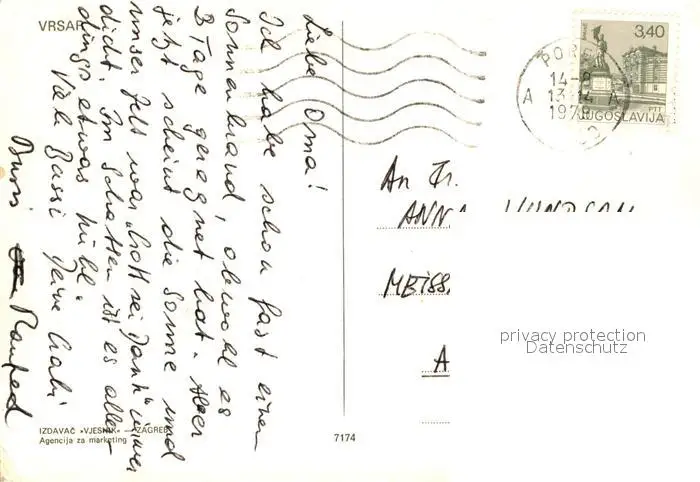 VRSAR
Liebe Oma!
Ich habe schon fast einen
Sonnenbrand, obwohl es
3 Tage geregnet hat. Aber
jetzt scheint die Sonne und
unser Zelt war „Gott sei Dank“ immer
dicht. Im Schatten ist es aller-
dings etwas kühl.
Viele Bussi Deine Gabi
Manfred
IZDAVAČ »VJESNIK« — ZAGREB
Agencija za marketing
7174
3,40
PTT
JUGOSLAVIJA
POREČ
14-8
A 13-14 A
1979
An Fr.
ANNA
MEISS
A
privacy protection
Datenschutz